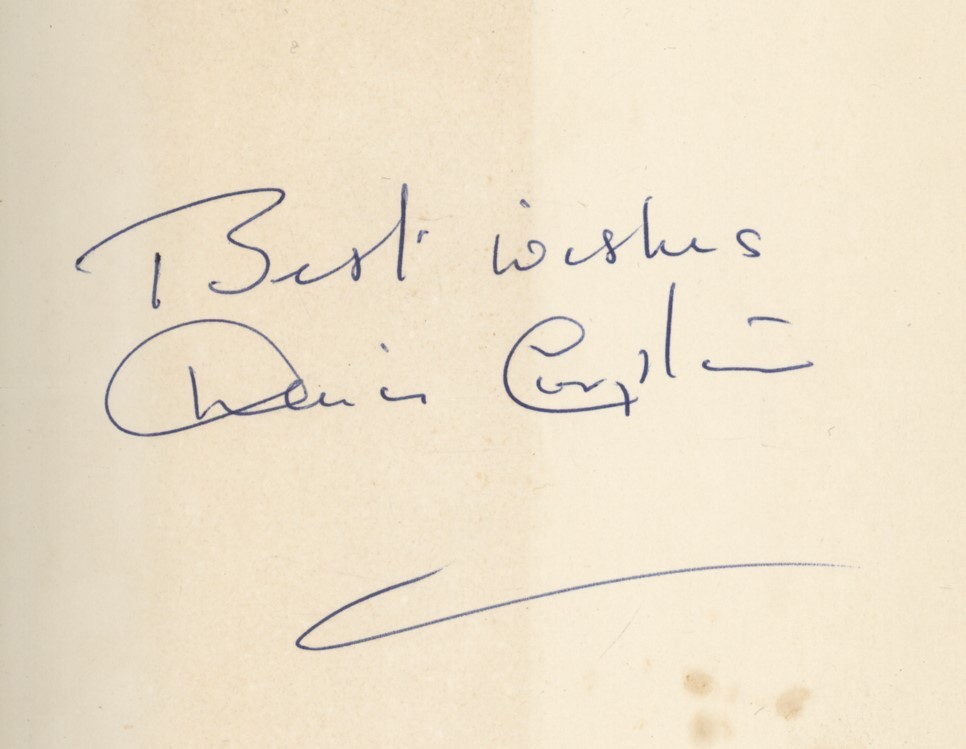 Best wishes
Denis Compton